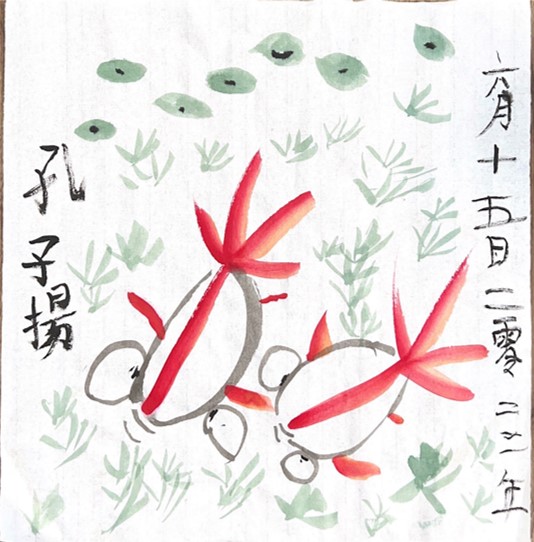 六月十五日二零二二年
孔子揚